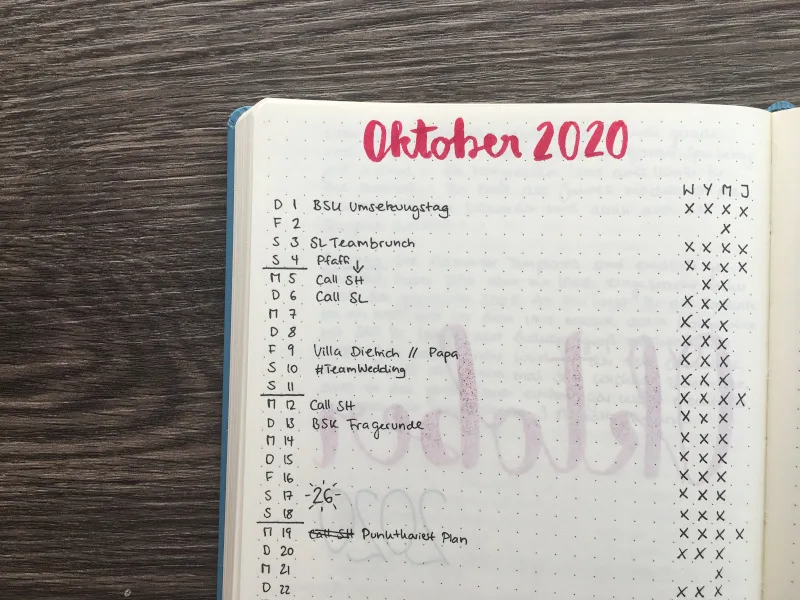 Oktober 2020
W Y M J
D 1 BSU Umsetzungstag X X X X
F 2 X
S 3 SL Teambrunch X X X X
S 4 Pfaff ↓ X X X X
M 5 Call SH X X
D 6 Call SL X X X
M 7 X X X
D 8 X X X
F 9 Villa Dietrich // Papa X X X
S 10 #TeamWedding X X X
S 11 X X X
M 12 Call SH X X X X
D 13 BSK Fragerunde X X X
M 14 X X X
D 15 X X X
F 16 X X X
S 17 -26- X X X
S 18 X X X
M 19 Call SH Punkthariest Plan X X X X
D 20 X X X
M 21 X
D 22 X X X